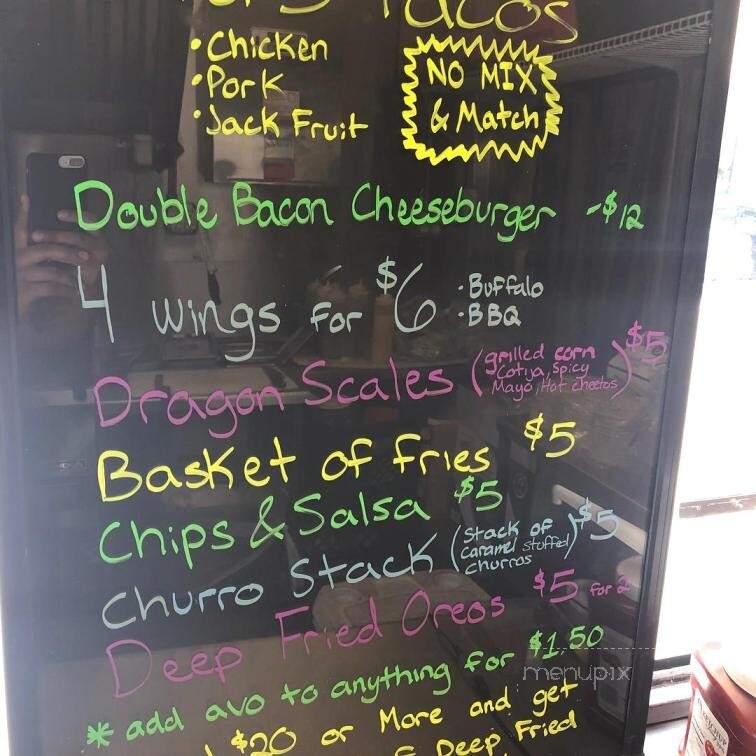 Tacos
• Chicken
• Pork
• Jack Fruit
NO MIX
& Match
Double Bacon Cheeseburger -$12
4 wings for $6
• Buffalo
• BBQ
Dragon Scales (grilled corn
Cotija, Spicy
Mayo, Hot cheetos) $5
Basket of fries $5
Chips & Salsa $5
Churro Stack (Stack of
caramel stuffed
churros) $5
Deep Fried Oreos $5 for 2
* add avo to anything for $1.50
$20 or More and get
Deep Fried
menupix